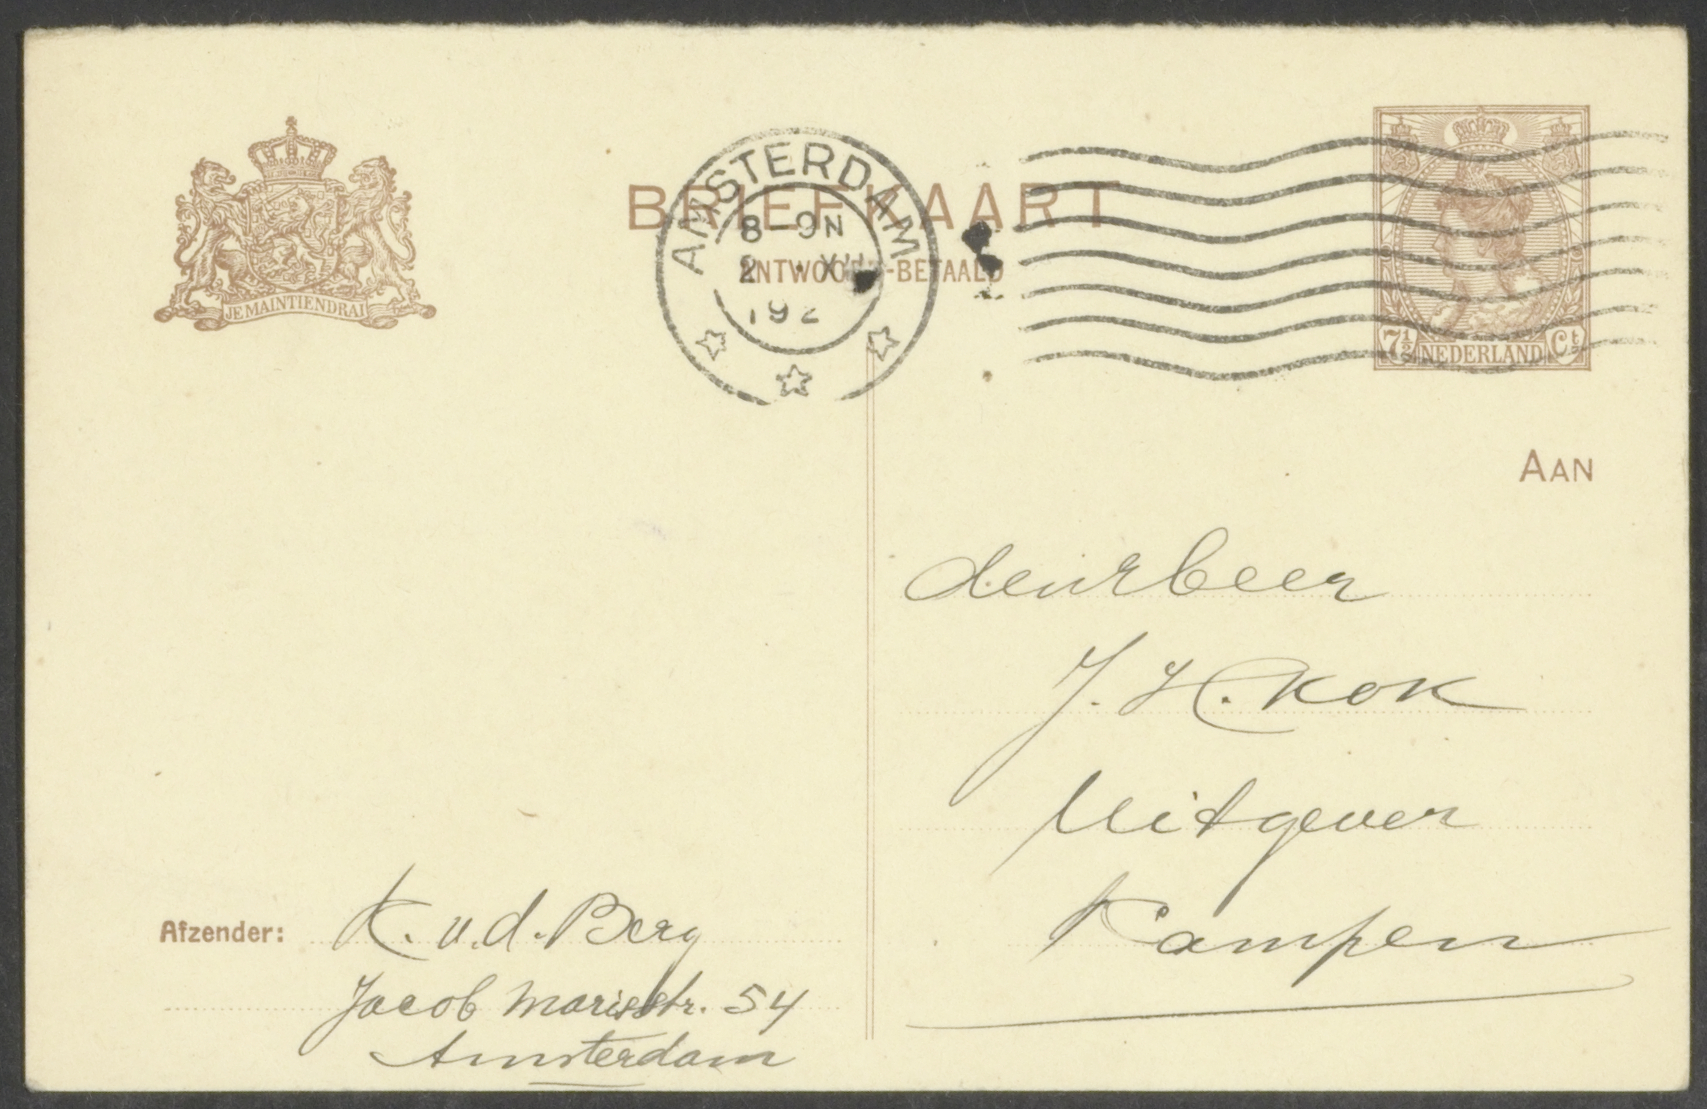 JE MAINTIENDRAI
BRIEFKAART
ANTWOORD-BETAALD
AMSTERDAM
8-9N
2 . XII
192
7½ NEDERLAND Ct
AAN
den heer
J. H. Kok
Uitgever
Kampen
Afzender: K. v. d. Berg
Jacob Marisstr. 54
Amsterdam